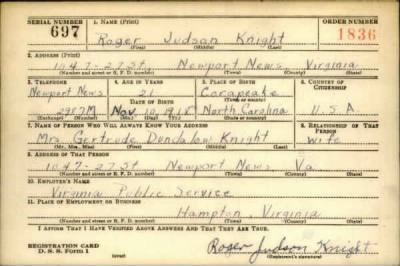 SERIAL NUMBER 1. NAME (Print) ORDER NUMBER
697 Roger Judson Knight 1836
(First) (Middle) (Last)
2. ADDRESS (Print)
1047-27 St. Newport News, Virginia
(Number and street or R. F. D. number) (Town) (County) (State)
3. TELEPHONE 4. AGE IN YEARS 5. PLACE OF BIRTH 6. COUNTRY OF CITIZENSHIP
Newport News 21 Corapeake
DATE OF BIRTH (Town or county)
2987M Nov. 10 1918 North Carolina U.S.A
(Exchange) (Number) (Mo.) (Day) (Yr.) (State or country)
7. NAME OF PERSON WHO WILL ALWAYS KNOW YOUR ADDRESS 8. RELATIONSHIP OF THAT PERSON
Mrs. Gertrude Knight wife
(Mr., Mrs., Miss) (First) (Middle) (Last)
9. ADDRESS OF THAT PERSON
1047-27 St Newport News Va.
(Number and street or R. F. D. number) (Town) (County) (State)
10. EMPLOYER'S NAME
Virginia Public Service
11. PLACE OF EMPLOYMENT OR BUSINESS
Hampton, Virginia
(Number and street or R. F. D. number) (Town) (County) (State)
I AFFIRM THAT I HAVE VERIFIED ABOVE ANSWERS AND THAT THEY ARE TRUE.
REGISTRATION CARD
D. S. S. Form 1 (over) Roger Judson Knight
(Registrant's signature)